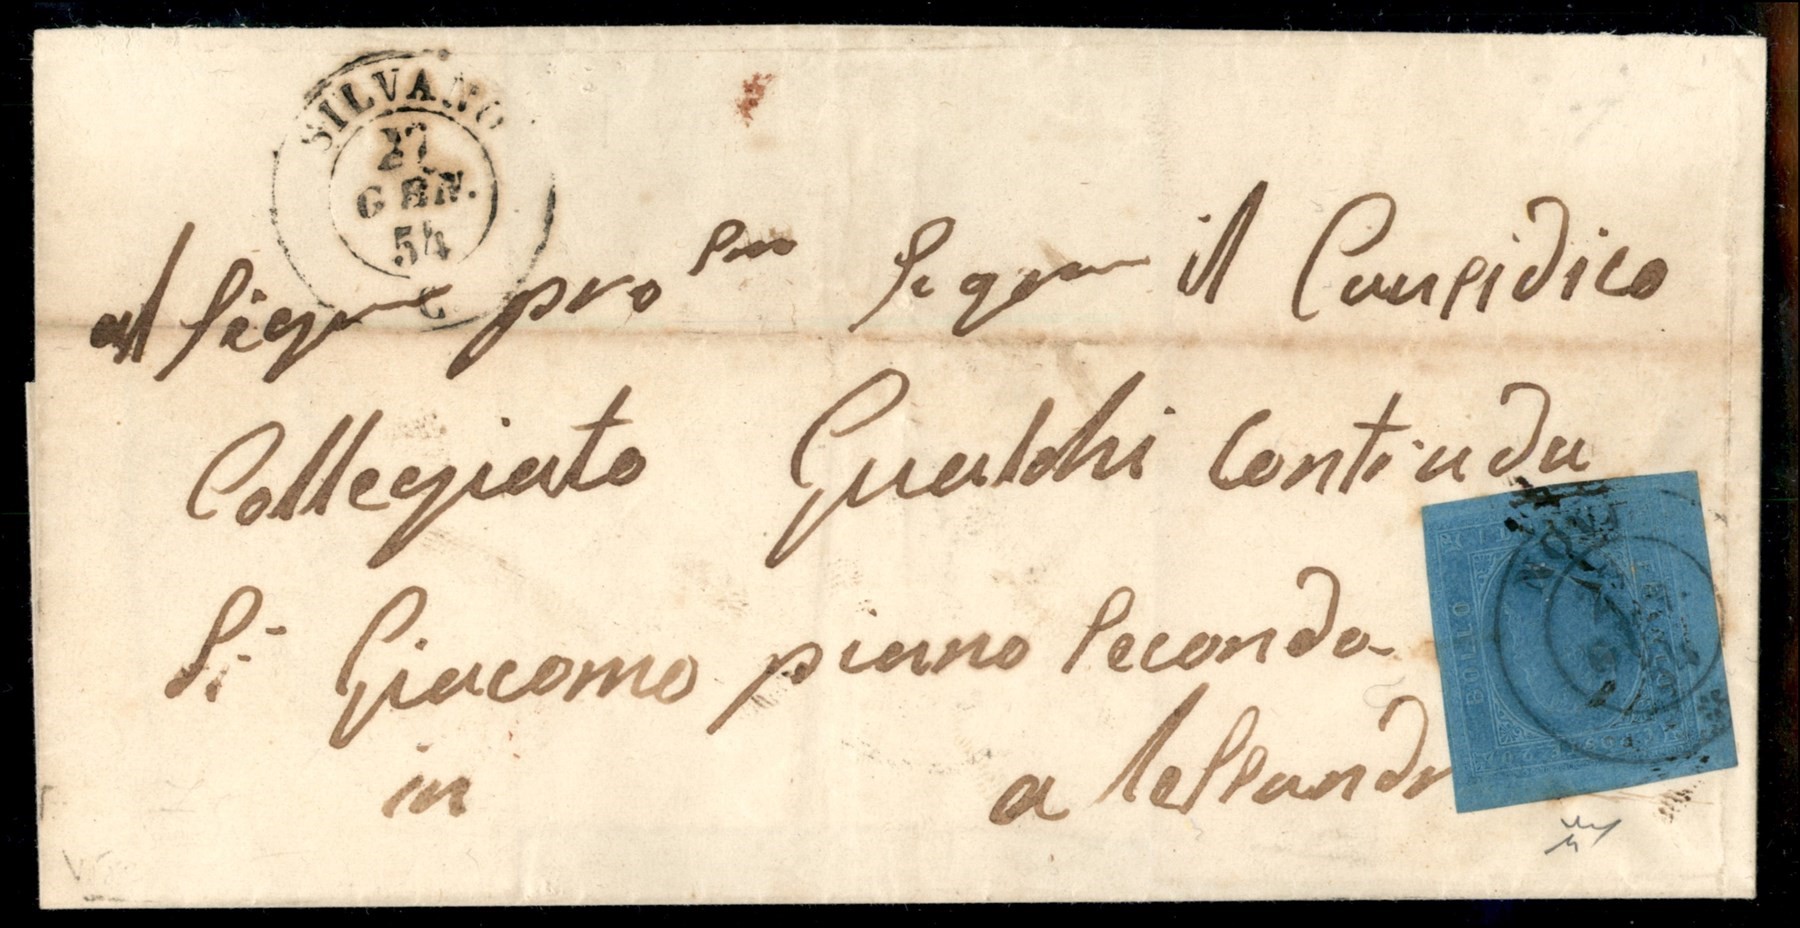 SILVANO
27
GEN.
54
al Sig.re pro.re Sig.re il Causidico
Collegiato Gualchi Contrada
Si Giacomo piano Secondo
in alessandr
BOLLO